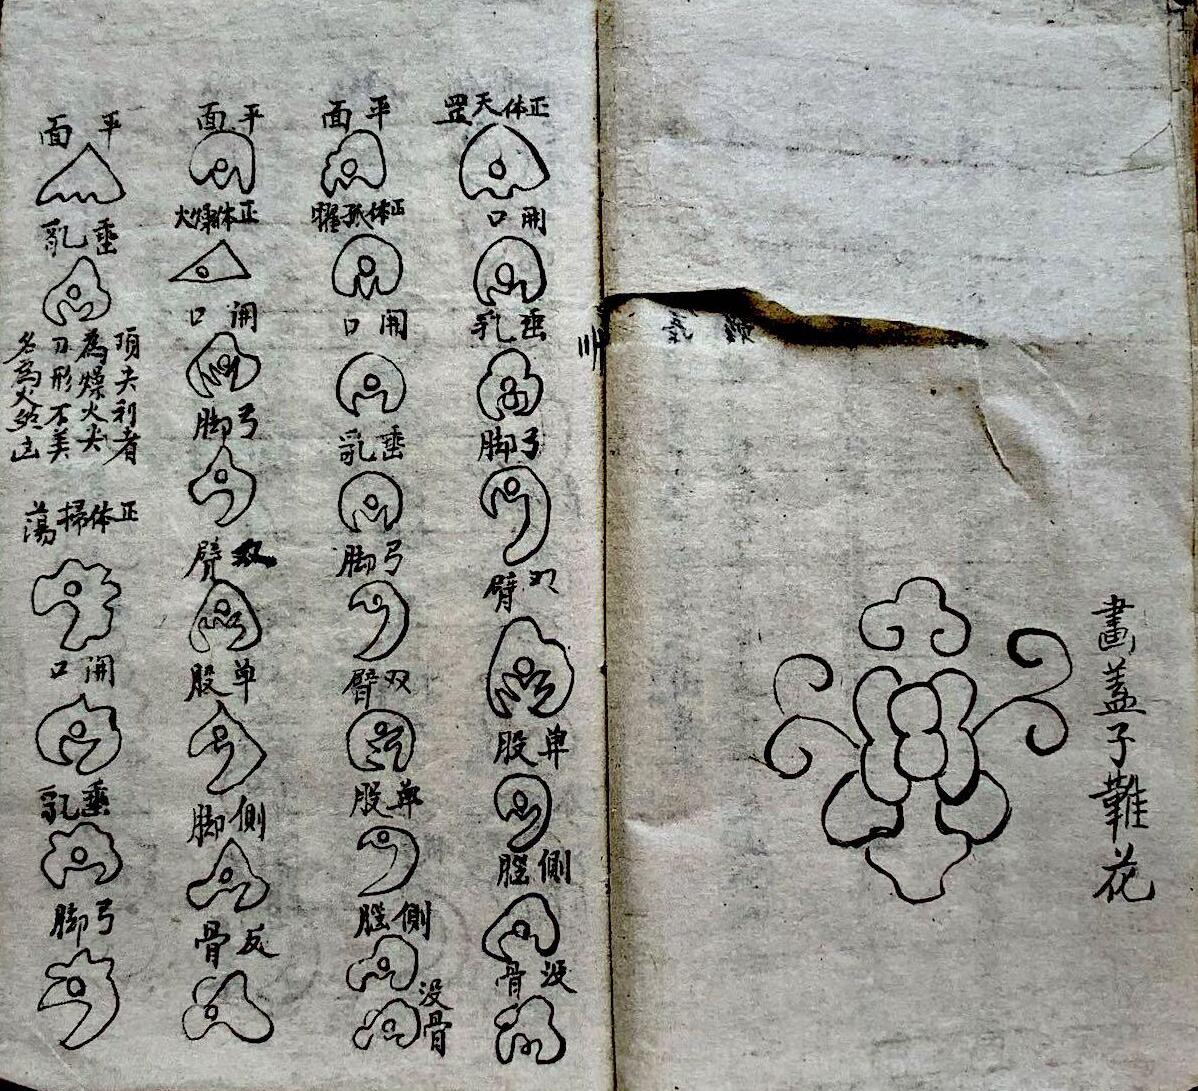 畫蓋子難花
正体天罡
開口
垂乳
弓脚
双臂
单股
側腦
没骨
平面
正体孤曜
開口
垂乳
弓脚
双臂
单股
側腦
没骨
平面
正体燥火
開口
弓脚
双臂
单股
側脚
反骨
平面
垂乳
項尖利者
為燥火尖
刀形不美
名為火
正体掃蕩
開口
垂乳
弓脚